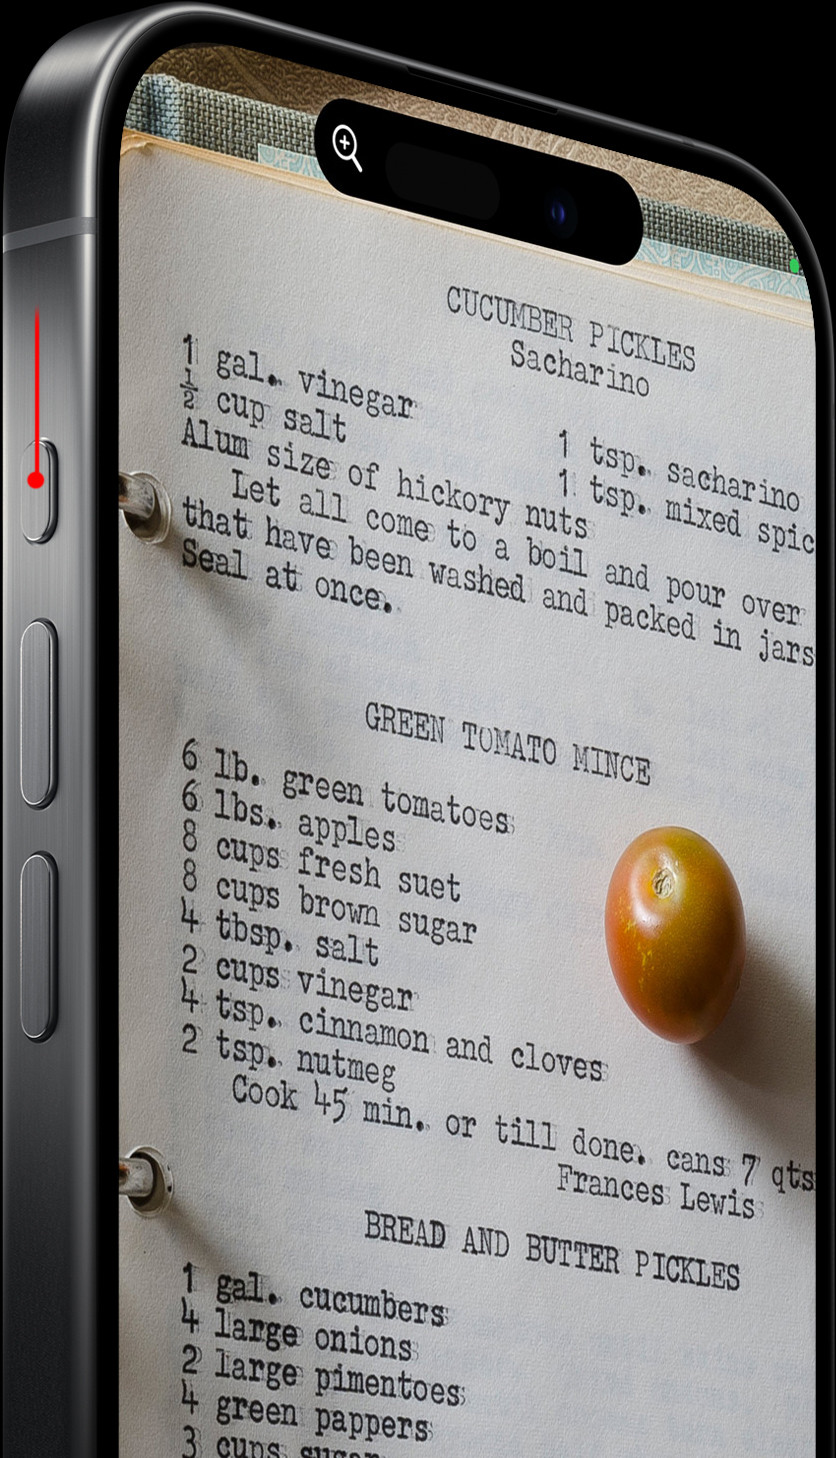 CUCUMBER PICKLES
Sacharino
1 gal. vinegar
½ cup salt
1 tsp. sacharino
Alum size of hickory nuts
1 tsp. mixed spic
Let all come to a boil and pour over
that have been washed and packed in jars
Seal at once.
GREEN TOMATO MINCE
6 lb. green tomatoes
6 lbs. apples
8 cups fresh suet
8 cups brown sugar
4 tbsp. salt
2 cups vinegar
4 tsp. cinnamon and cloves
2 tsp. nutmeg
Cook 45 min. or till done. cans 7 qts
Frances Lewis
BREAD AND BUTTER PICKLES
1 gal. cucumbers
4 large onions
2 large pimentoes
4 green pappers
3 cups sugar